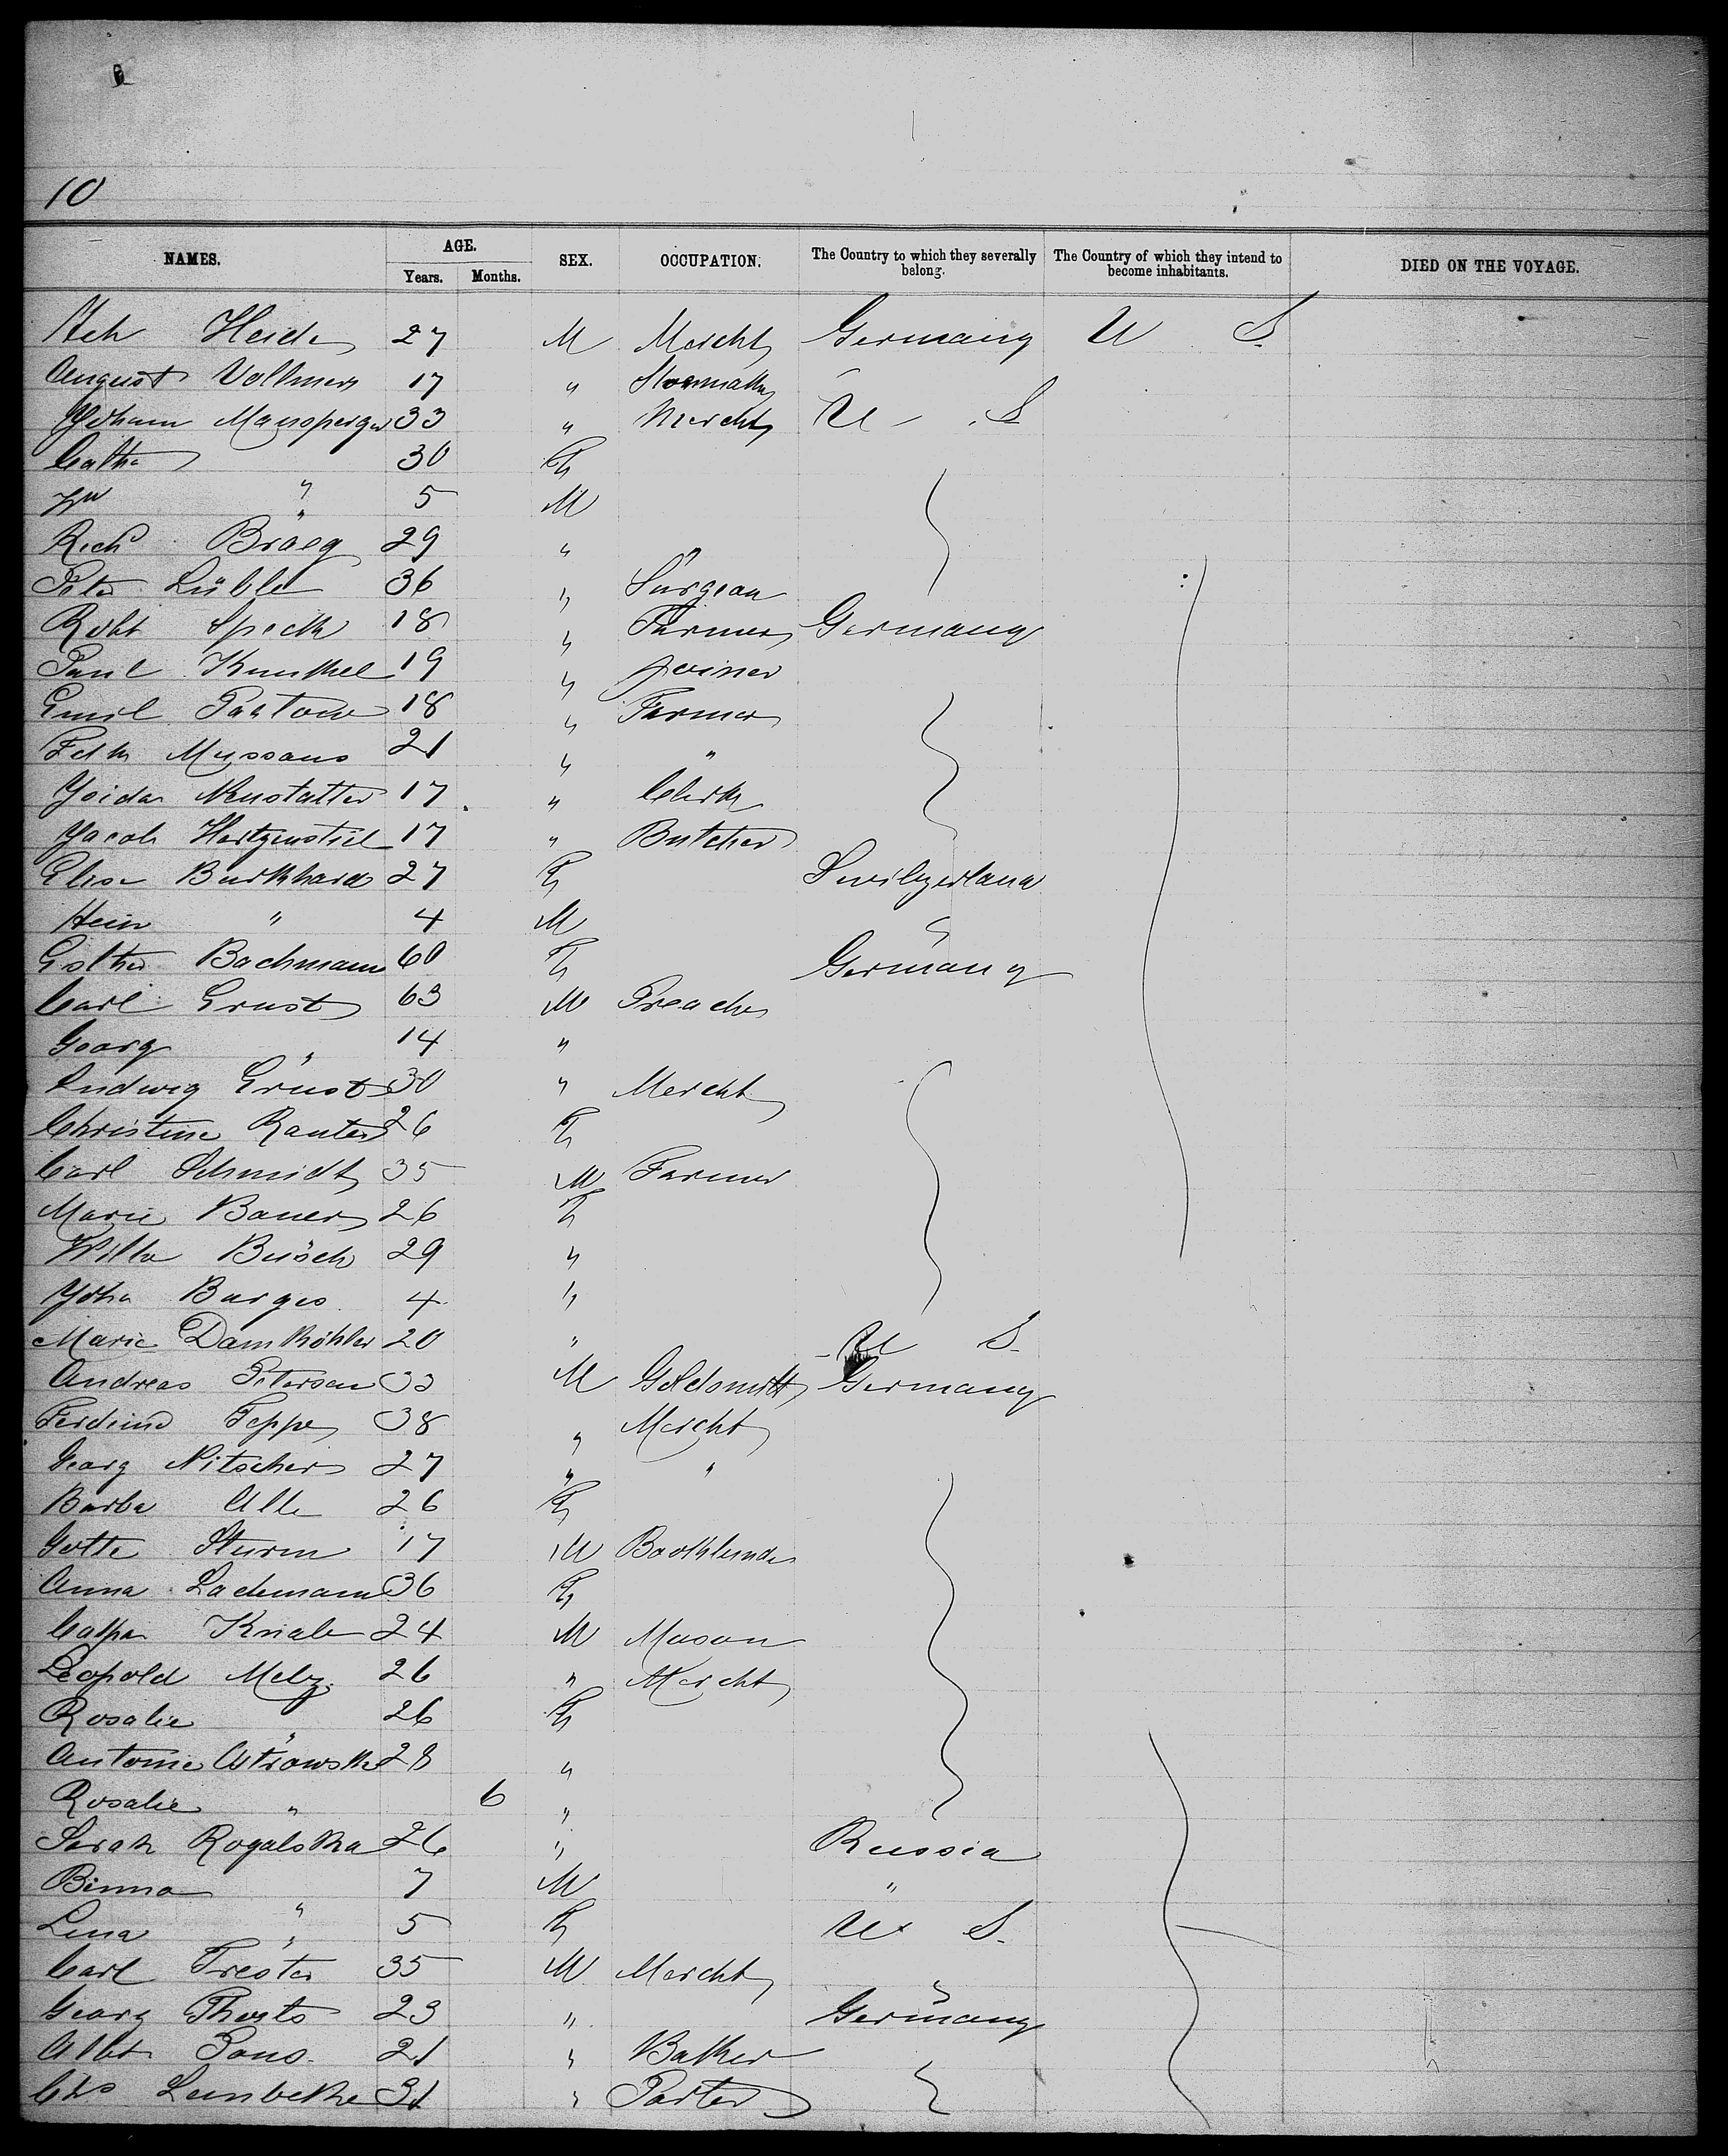 10
NAMES. AGE. Years. Months. SEX. OCCUPATION. The Country to which they severally belong. The Country of which they intend to become inhabitants. DIED ON THE VOYAGE.
Heide 27 M Mercht Germany U S.
August Vollmer 17 "
33 " Mercht U S
Catha " 30 F
Wm " 5 M
Richd Braeg 29 "
Peter Lüble 36 " Surgeon
Robt Specth 18 " Farmer Germany
Paul Kunkel 19 " Joiner
Emil Pastow 18 " Farmer
Mussaus 21 " "
Neustatter 17 " Clerk
Jacob 17 " Butcher
Elise Burkhard 27 F Switzerland
Hein " 4 M "
Esther Bachmann 60 F Germany
Carl Ernst 63 M Preacher
Georg " 14 "
Ludwig Ernst 30 " Mercht
Christine Rauter 26 F
Carl Schmidt 35 M Farmer
Marie Bauer 26 F
Wilha Büsch 29 "
Joha Burges 4 "
Marie Damköhler 20 " U S.
Andreas Petersen 33 M Goldsmith Germany
Ferdind Teppe 38 " Mercht
Georg Nitscher 27 " "
Barba 26 F
Gotte Sturm 17 M
Anna Lachmann 36 F
24 M Mason
Leopold Metz. 26 " Mercht
Rosalie " 26 F
Antonie 28 "
Rosalie " 6 "
Sarah Rogalska 26 " Russia
Binna " 7 M "
Lina " 5 F U S.
Carl Trester 35 M Mercht "
Georg 23 " Germany
Albt Pons. 21 " Baker
Chs Lembeke 31 " Porter